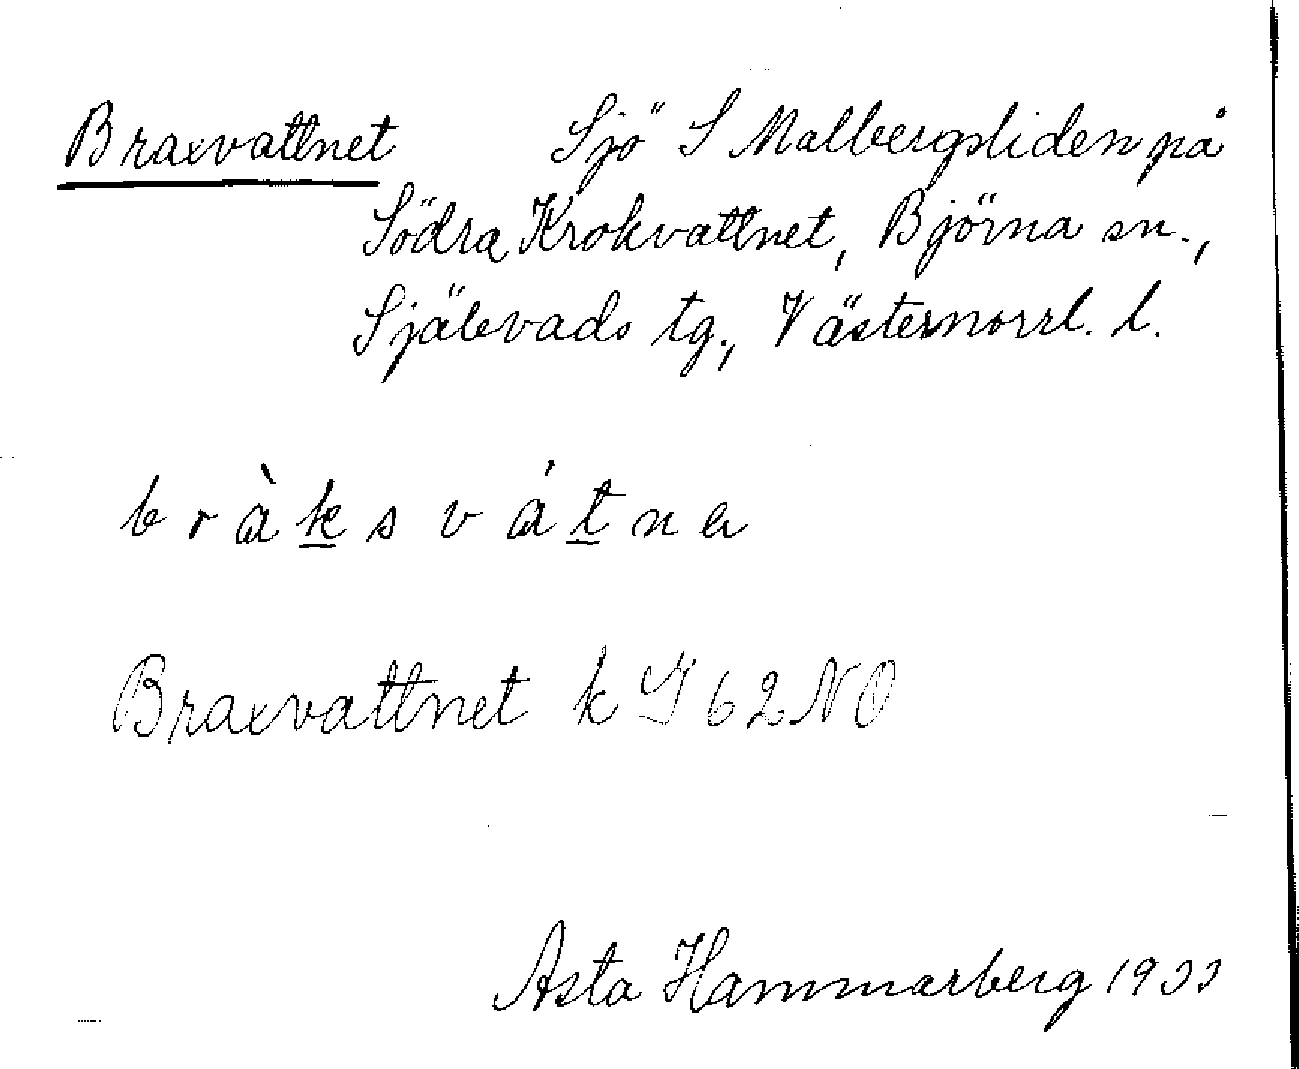 Braxvattnet Sjö S Malbergsliden på
Södra Krokvattnet, Björna sn.,
Själevads tg., Västernorrl. l.
bràksvátna
Braxvattnet k J 62 NO
Asta Hammarberg 1933